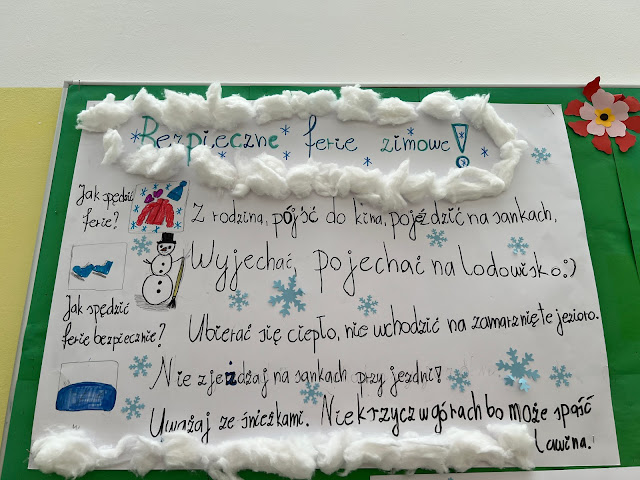 Bezpieczne ferie zimowe!
Jak spędzić
ferie?
Z rodziną, pójść do kina, pojeździć na sankach,
Wyjechać, pojechać na lodowisko:)
Jak spędzić
ferie bezpiecznie?
Ubierać się ciepło, nie wchodzić na zamarznięte jezioro.
Nie zjeżdżaj na sankach przy jezdni!
Uważaj ze śnieżkami. Nie krzycz w górach bo może spaść
lawina.